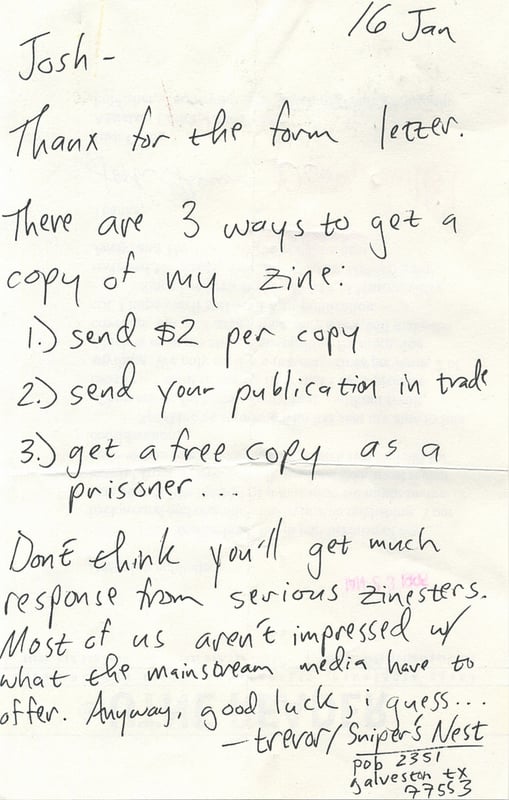 16 Jan
Josh -
Thanx for the form letter.
There are 3 ways to get a
copy of my zine:
1.) send $2 per copy
2.) send your publication in trade
3.) get a free copy as a
prisoner...
Don't think you'll get much
response from serious zinesters.
Most of us aren't impressed w/
what the mainstream media have to
offer. Anyway, good luck, i guess...
—trevor/Sniper's Nest
pob 2351
galveston tx
77553